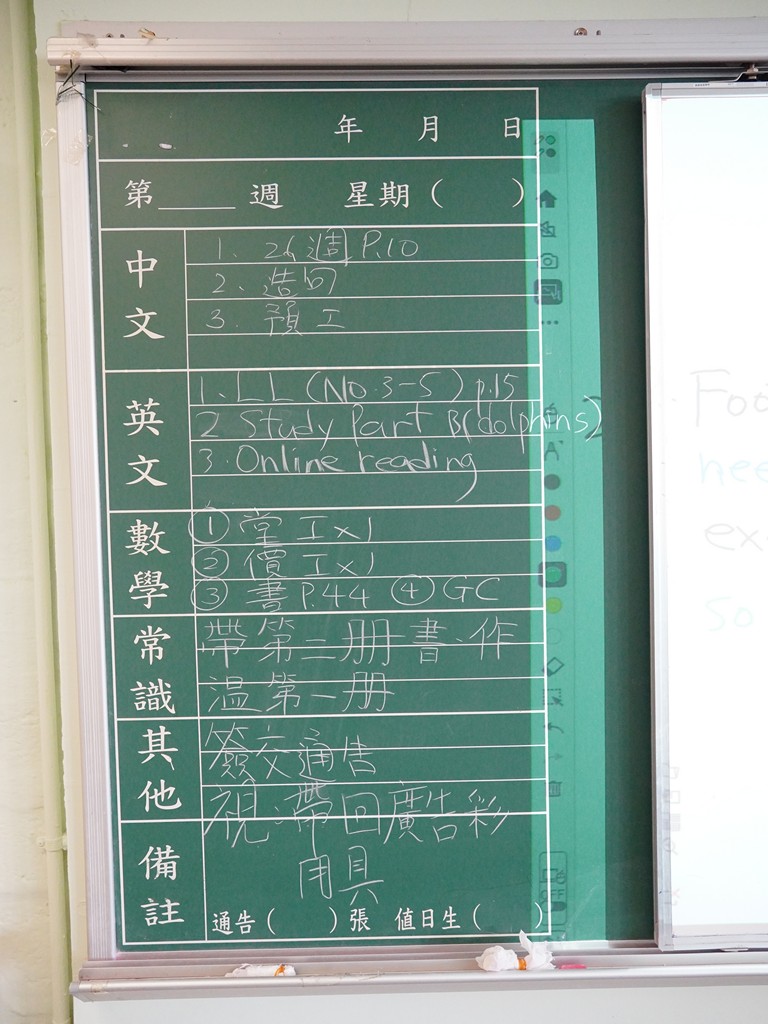 年 月 日
第____週 星期( )
中文
1. 26週 P.10
2. 造句
3. 預工
英文
1. LL (NO.3-5) p.15
2 Study Part B(dolphins)
3. Online reading
數學
① 堂工x1
② 價工x1
③ 書P.44 ④ GC
常識
帶第二册書、作
溫第一册
其他
簽交通告
視:帶回廣告彩
用具
備註
通告( )張 值日生( )
Foo
nee
ex
so